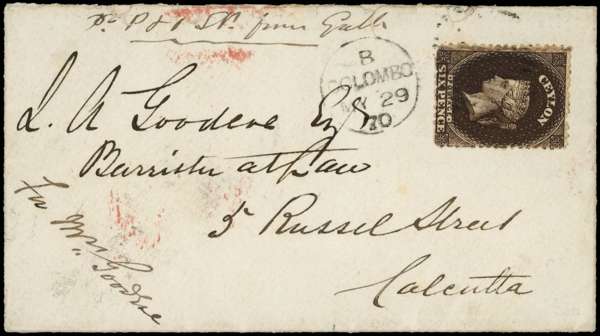 pr P & O Str. from Galle
B
COLOMBO
MY 29
70
CEYLON
POSTAGE
SIXPENCE
L. A. Goodeve Esq
Barrister at Law
5 Russel Street
Calcutta
for Mrs Goodeve